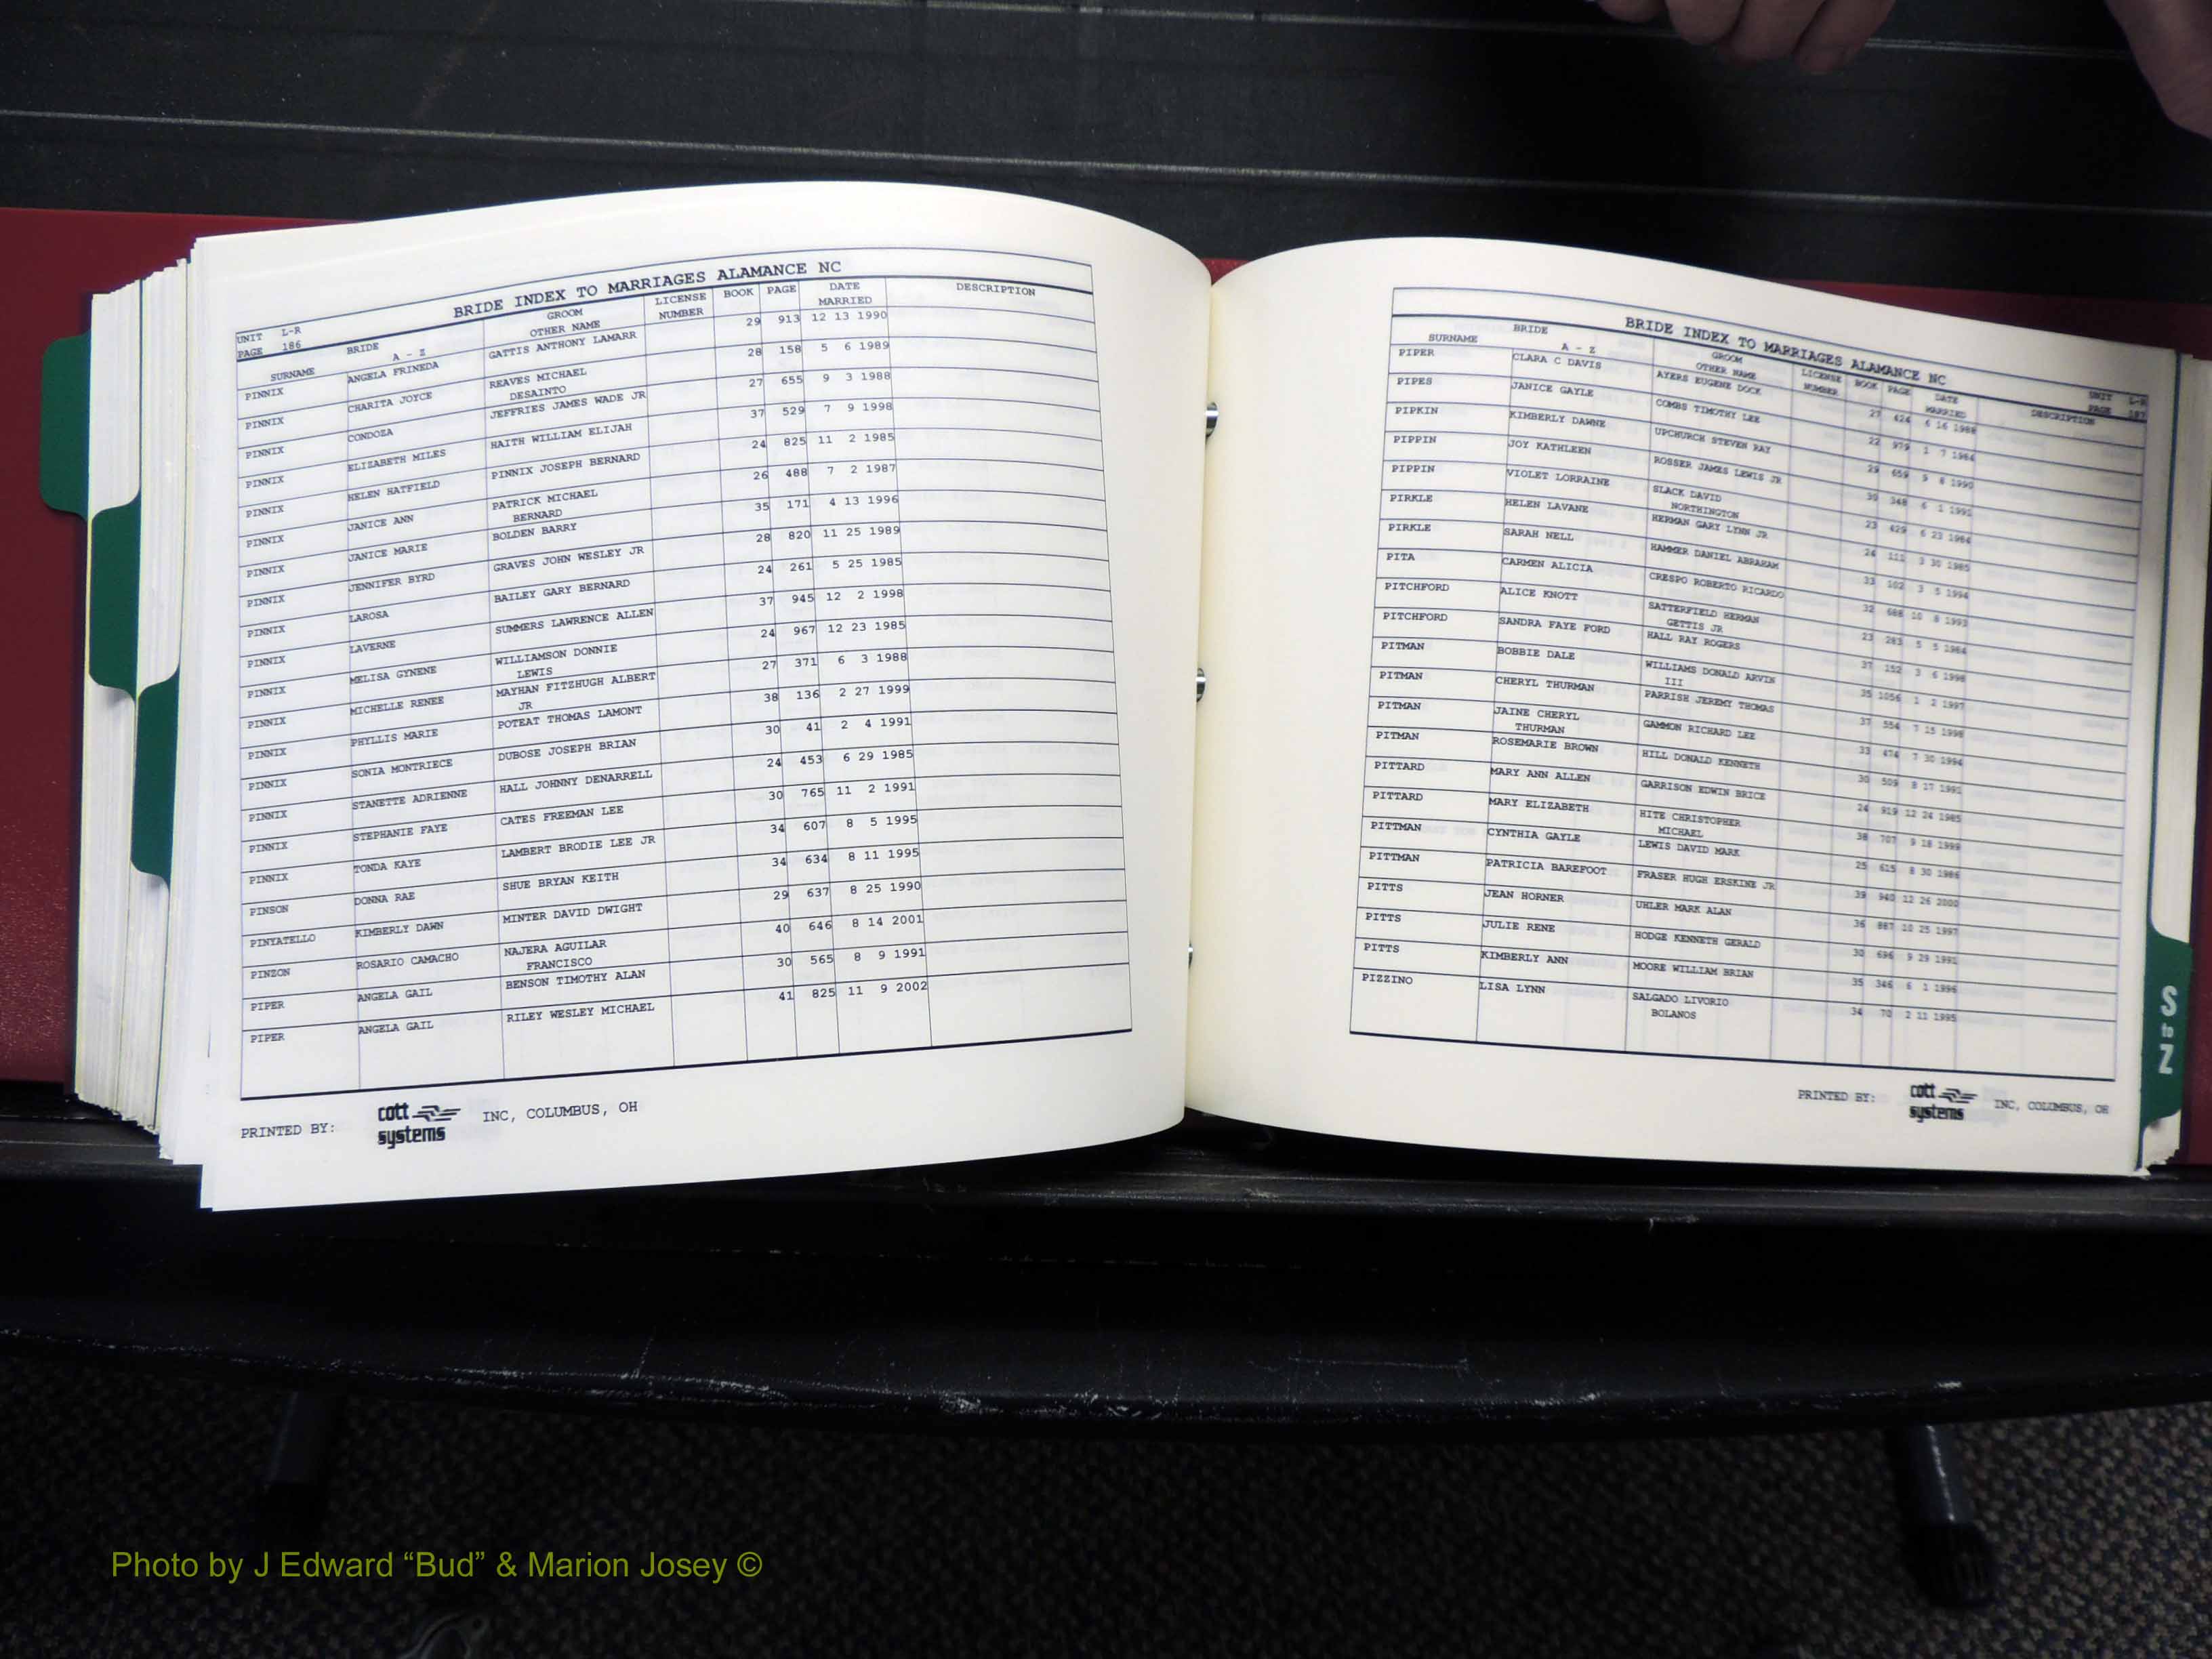 UNIT L-R
PAGE 186
BRIDE INDEX TO MARRIAGES ALAMANCE NC
SURNAME BRIDE A - Z GROOM OTHER NAME LICENSE NUMBER BOOK PAGE DATE MARRIED DESCRIPTION
PINNIX ANGELA FRINEDA GATTIS ANTHONY LAMARR 29 913 12 13 1990
PINNIX CHARITA JOYCE REAVES MICHAEL 28 158 5 6 1989
DESAINTO
PINNIX CONDOZA JEFFRIES JAMES WADE JR 27 655 9 3 1988
PINNIX ELIZABETH MILES HAITH WILLIAM ELIJAH 37 529 7 9 1998
PINNIX HELEN HATFIELD PINNIX JOSEPH BERNARD 24 825 11 2 1985
PINNIX JANICE ANN PATRICK MICHAEL 26 488 7 2 1987
BERNARD
PINNIX JANICE MARIE BOLDEN BARRY 35 171 4 13 1996
PINNIX JENNIFER BYRD GRAVES JOHN WESLEY JR 28 820 11 25 1989
PINNIX LAROSA BAILEY GARY BERNARD 24 261 5 25 1985
PINNIX LAVERNE SUMMERS LAWRENCE ALLEN 37 945 12 2 1998
PINNIX MELISA GYNENE WILLIAMSON DONNIE 24 967 12 23 1985
LEWIS
PINNIX MICHELLE RENEE MAYHAN FITZHUGH ALBERT 27 371 6 3 1988
JR
PINNIX PHYLLIS MARIE POTEAT THOMAS LAMONT 38 136 2 27 1999
PINNIX SONIA MONTRIECE DUBOSE JOSEPH BRIAN 30 41 2 4 1991
PINNIX STANETTE ADRIENNE HALL JOHNNY DENARRELL 24 453 6 29 1985
PINNIX STEPHANIE FAYE CATES FREEMAN LEE 30 765 11 2 1991
PINNIX TONDA KAYE LAMBERT BRODIE LEE JR 34 607 8 5 1995
PINSON DONNA RAE SHUE BRYAN KEITH 34 634 8 11 1995
PINYATELLO KIMBERLY DAWN MINTER DAVID DWIGHT 29 637 8 25 1990
PINZON ROSARIO CAMACHO NAJERA AGUILAR 40 646 8 14 2001
FRANCISCO
PIPER ANGELA GAIL BENSON TIMOTHY ALAN 30 565 8 9 1991
PIPER ANGELA GAIL RILEY WESLEY MICHAEL 41 825 11 9 2002
PRINTED BY: cott systems INC, COLUMBUS, OH
BRIDE INDEX TO MARRIAGES ALAMANCE NC
UNIT L-R
PAGE 187
SURNAME BRIDE A - Z GROOM OTHER NAME LICENSE NUMBER BOOK PAGE DATE MARRIED DESCRIPTION
PIPER CLARA C DAVIS AYERS EUGENE DOCK 27 424 6 16 1988
PIPES JANICE GAYLE COMBS TIMOTHY LEE 22 979 1 7 1984
PIPKIN KIMBERLY DAWNE UPCHURCH STEVEN RAY 29 659 9 8 1990
PIPPIN JOY KATHLEEN ROSSER JAMES LEWIS JR 30 348 6 1 1991
PIPPIN VIOLET LORRAINE SLACK DAVID 23 429 6 23 1984
NORTHINGTON
PIRKLE HELEN LAVANE HERMAN GARY LYNN JR 24 111 3 30 1985
PIRKLE SARAH NELL HAMMER DANIEL ABRAHAM 33 102 3 5 1994
PITA CARMEN ALICIA CRESPO ROBERTO RICARDO 32 688 10 8 1993
PITCHFORD ALICE KNOTT SATTERFIELD HERMAN 23 283 5 5 1984
GETTIS JR
PITCHFORD SANDRA FAYE FORD HALL RAY ROGERS 37 152 3 6 1998
PITMAN BOBBIE DALE WILLIAMS DONALD ARVIN 35 1056 1 2 1997
III
PITMAN CHERYL THURMAN PARRISH JEREMY THOMAS 37 554 7 15 1998
PITMAN JAINE CHERYL GAMMON RICHARD LEE 33 474 7 30 1994
THURMAN
PITMAN ROSEMARIE BROWN HILL DONALD KENNETH 30 509 8 17 1991
PITTARD MARY ANN ALLEN GARRISON EDWIN BRICE 24 919 12 24 1985
PITTARD MARY ELIZABETH HITE CHRISTOPHER 38 707 9 18 1999
MICHAEL
PITTMAN CYNTHIA GAYLE LEWIS DAVID MARK 25 615 8 30 1986
PITTMAN PATRICIA BAREFOOT FRASER HUGH ERSKINE JR 39 940 12 26 2000
PITTS JEAN HORNER UHLER MARK ALAN 36 887 10 25 1997
PITTS JULIE RENE HODGE KENNETH GERALD 30 696 9 29 1991
PITTS KIMBERLY ANN MOORE WILLIAM BRIAN 35 346 6 1 1996
PIZZINO LISA LYNN SALGADO LIVORIO 34 70 2 11 1995
BOLANOS
PRINTED BY: cott systems INC, COLUMBUS, OH
S to Z
Photo by J Edward “Bud” & Marion Josey ©